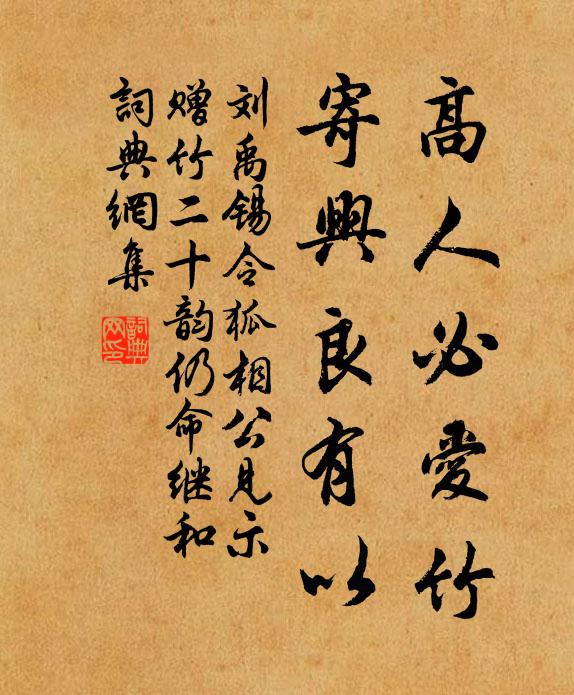 高人必愛竹
寄興良有以
刘禹锡令狐相公见示
赠竹二十韵仍命继和
詞典網集
詞典網印